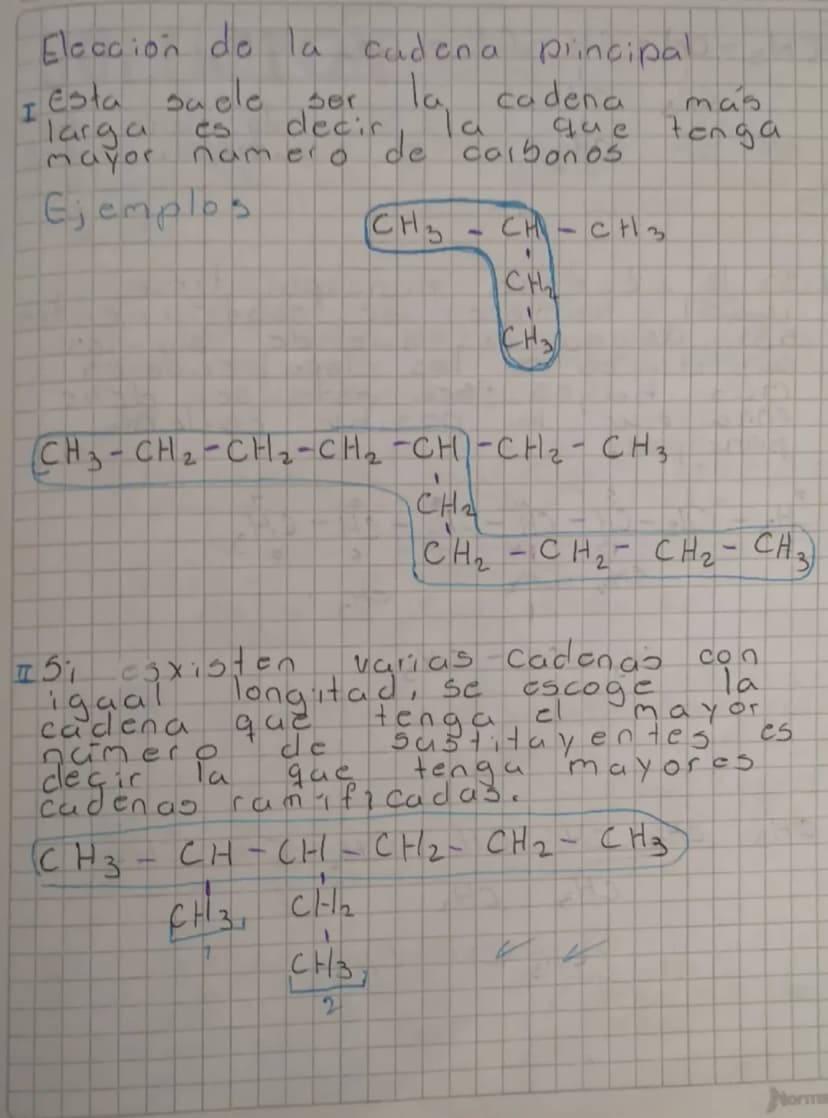 Elección de la cadena principal
I Esta suele ser la cadena más
larga es decir, la que tenga
mayor numero de carbonos
Ejemplos
CH3 - CH - CH3
CH2
CH3
CH3 - CH2 - CH2 - CH2 - CH - CH2 - CH3
CH2
CH2 - CH2 - CH2 - CH3
II Si esxisten varias cadenas con
igual longitud, se escoge la
cadena que tenga el mayor
número de sustituyentes es
decir la que tenga mayores
cadenas ramificadas.
CH3 - CH - CH - CH2 - CH2 - CH3
CH3 CH2
1 CH3
2
Norma